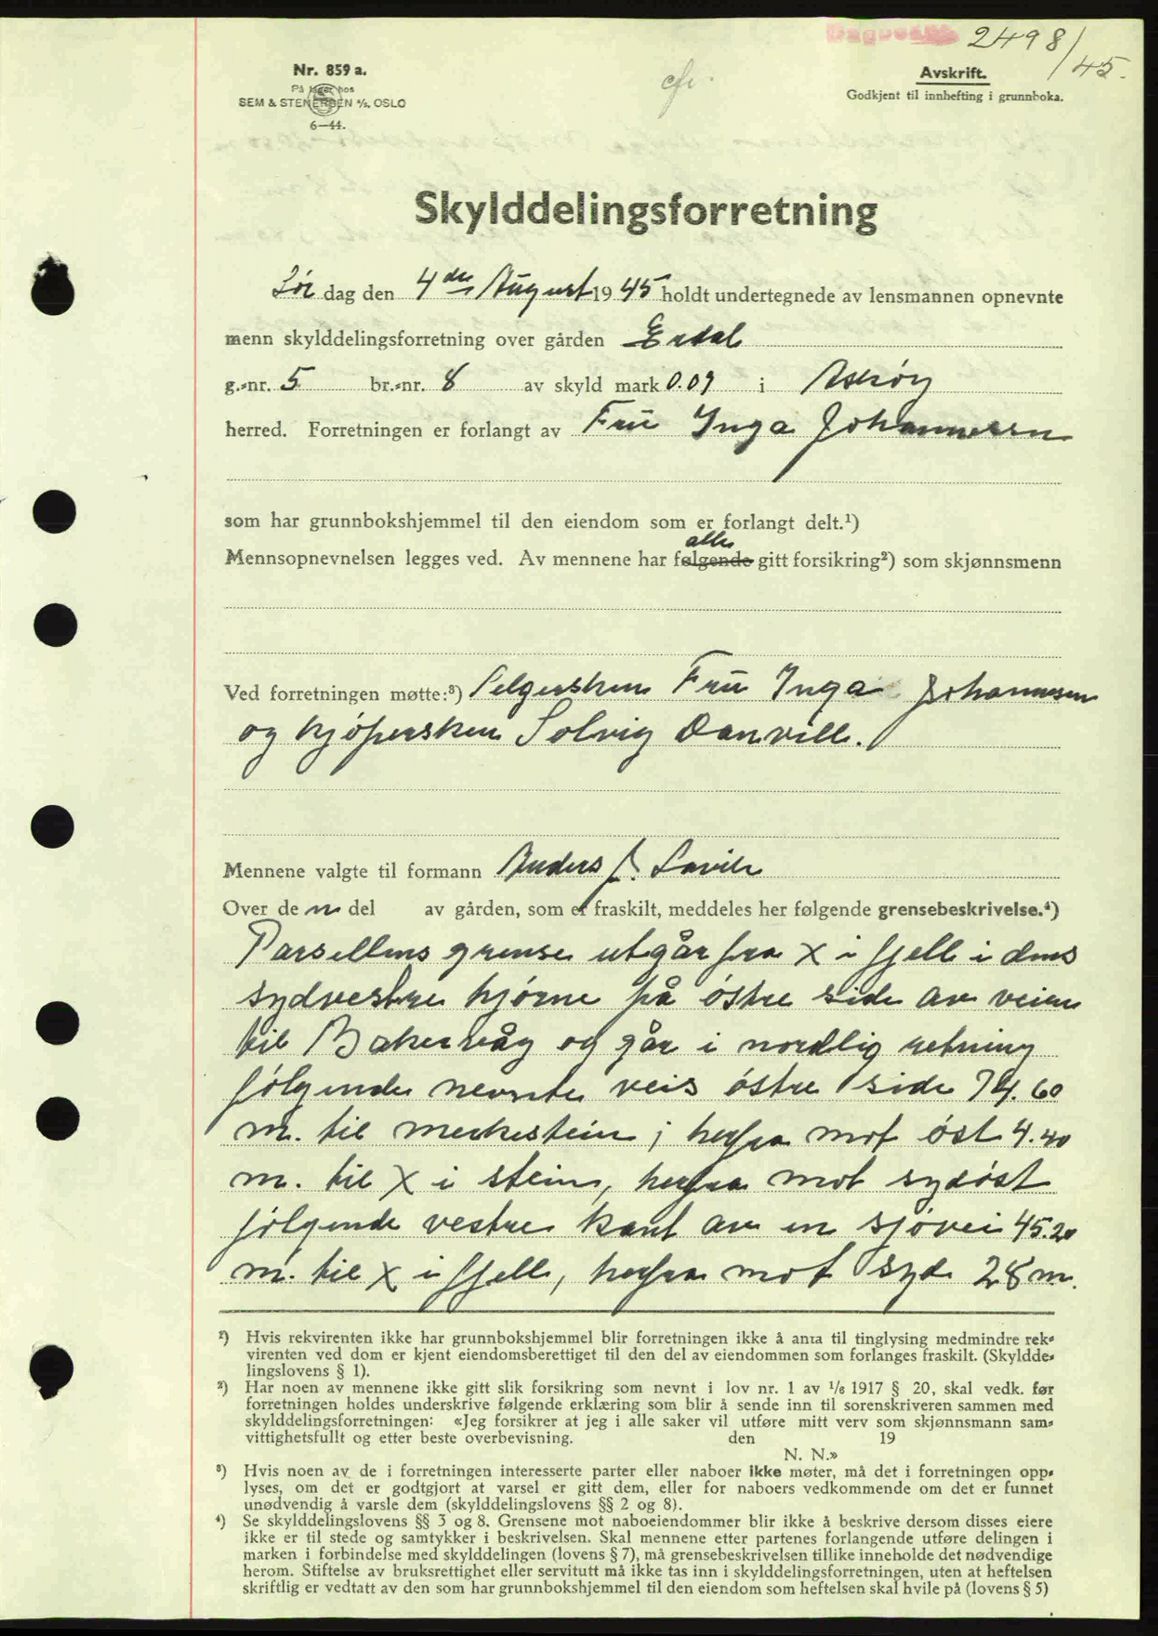 Dagbok 2498/45.
Nr. 859 a.
På lager hos
SEM & STENERSEN A/S. OSLO
6—44.
cfr.
Avskrift.
Godkjent til innhefting i grunnboka.
Skylddelingsforretning
Lør dag den 4de August 1945 holdt undertegnede av lensmannen opnevnte
menn skylddelingsforretning over gården Erdal
g.-nr. 5 br.-nr. 8 av skyld mark 0.09 i Askøy
herred. Forretningen er forlangt av Frü Inga Johannessen
som har grunnbokshjemmel til den eiendom som er forlangt delt.¹)
alle
Mennsopnevnelsen legges ved. Av mennene har følgende gitt forsikring²) som skjønnsmenn
Ved forretningen møtte:³) Selgersken Frü Inga Johannesen
og kjøpersken Solvig Danvill.
Mennene valgte til formann Anders J.
Over de n del av gården, som er fraskilt, meddeles her følgende grensebeskrivelse.⁴)
Parsellens grense utgår fra X i fjell i dens
sydvestre hjørne på østre side av veien
til Bakervåg og går i nordlig retning
følgende nevnte veis østre side 74.60
m. til merkestein; herfra mot øst 4.40
m. til X i stein, herfra mot sydøst
følgende vestre kant av en sjøvei 45.20
m. til X i fjell, herfra mot syd 28 m.
¹) Hvis rekvirenten ikke har grunnbokshjemmel blir forretningen ikke å anta til tinglysing medmindre rek-
virenten ved dom er kjent eiendomsberettiget til den del av eiendommen som forlanges fraskilt. (Skyldde-
lingslovens § 1).
²) Har noen av mennene ikke gitt slik forsikring som nevnt i lov nr. 1 av 1/6 1917 § 20, skal vedk. før
forretningen holdes underskrive følgende erklæring som blir å sende inn til sorenskriveren sammen med
skylddelingsforretningen: «Jeg forsikrer at jeg i alle saker vil utføre mitt verv som skjønnsmann sam-
vittighetsfullt og etter beste overbevisning. den 19
N. N.»
³) Hvis noen av de i forretningen interesserte parter eller naboer ikke møter, må det i forretningen opp-
lyses, om det er godtgjort at varsel er gitt dem, eller for naboers vedkommende om det er funnet
unødvendig å varsle dem (skylddelingslovens §§ 2 og 8).
⁴) Se skylddelingslovens §§ 3 og 8. Grensene mot naboeiendommer blir ikke å beskrive dersom disses eiere
ikke er til stede og samtykker i beskrivelsen. Skal mennene etter partenes forlangende utføre delingen i
marken i forbindelse med skylddelingen (lovens § 7), må grensebeskrivelsen tillike inneholde det nødvendige
herom. Stiftelse av bruksrettighet eller servitutt må ikke tas inn i skylddelingsforretningen, uten at heftelsen
skriftlig er vedtatt av den som har grunnbokshjemmel til den eiendom som heftelsen skal hvile på (lovens § 5)